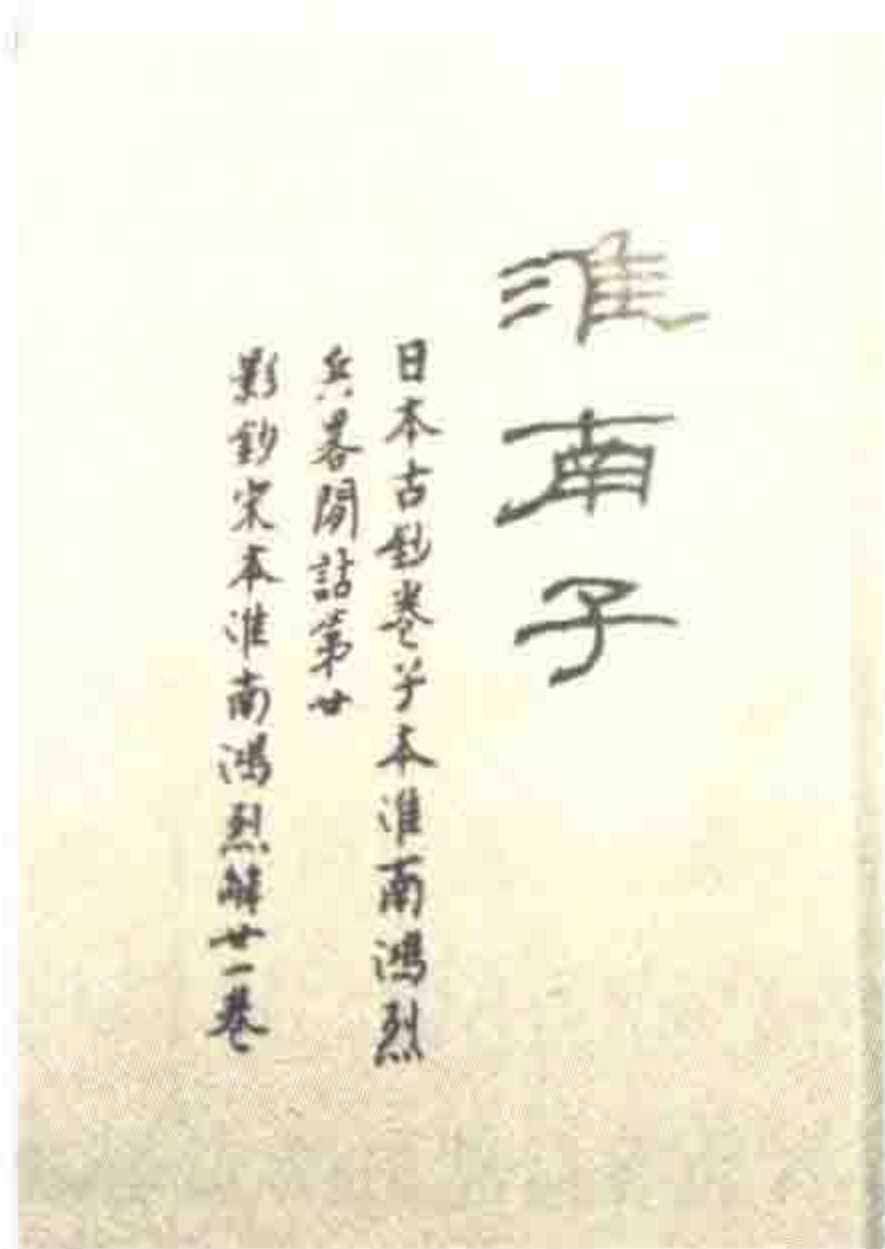 淮南子
日本古鈔卷子本淮南鴻烈
兵畧閒詁第廿
影鈔宋本淮南鴻烈解廿一卷